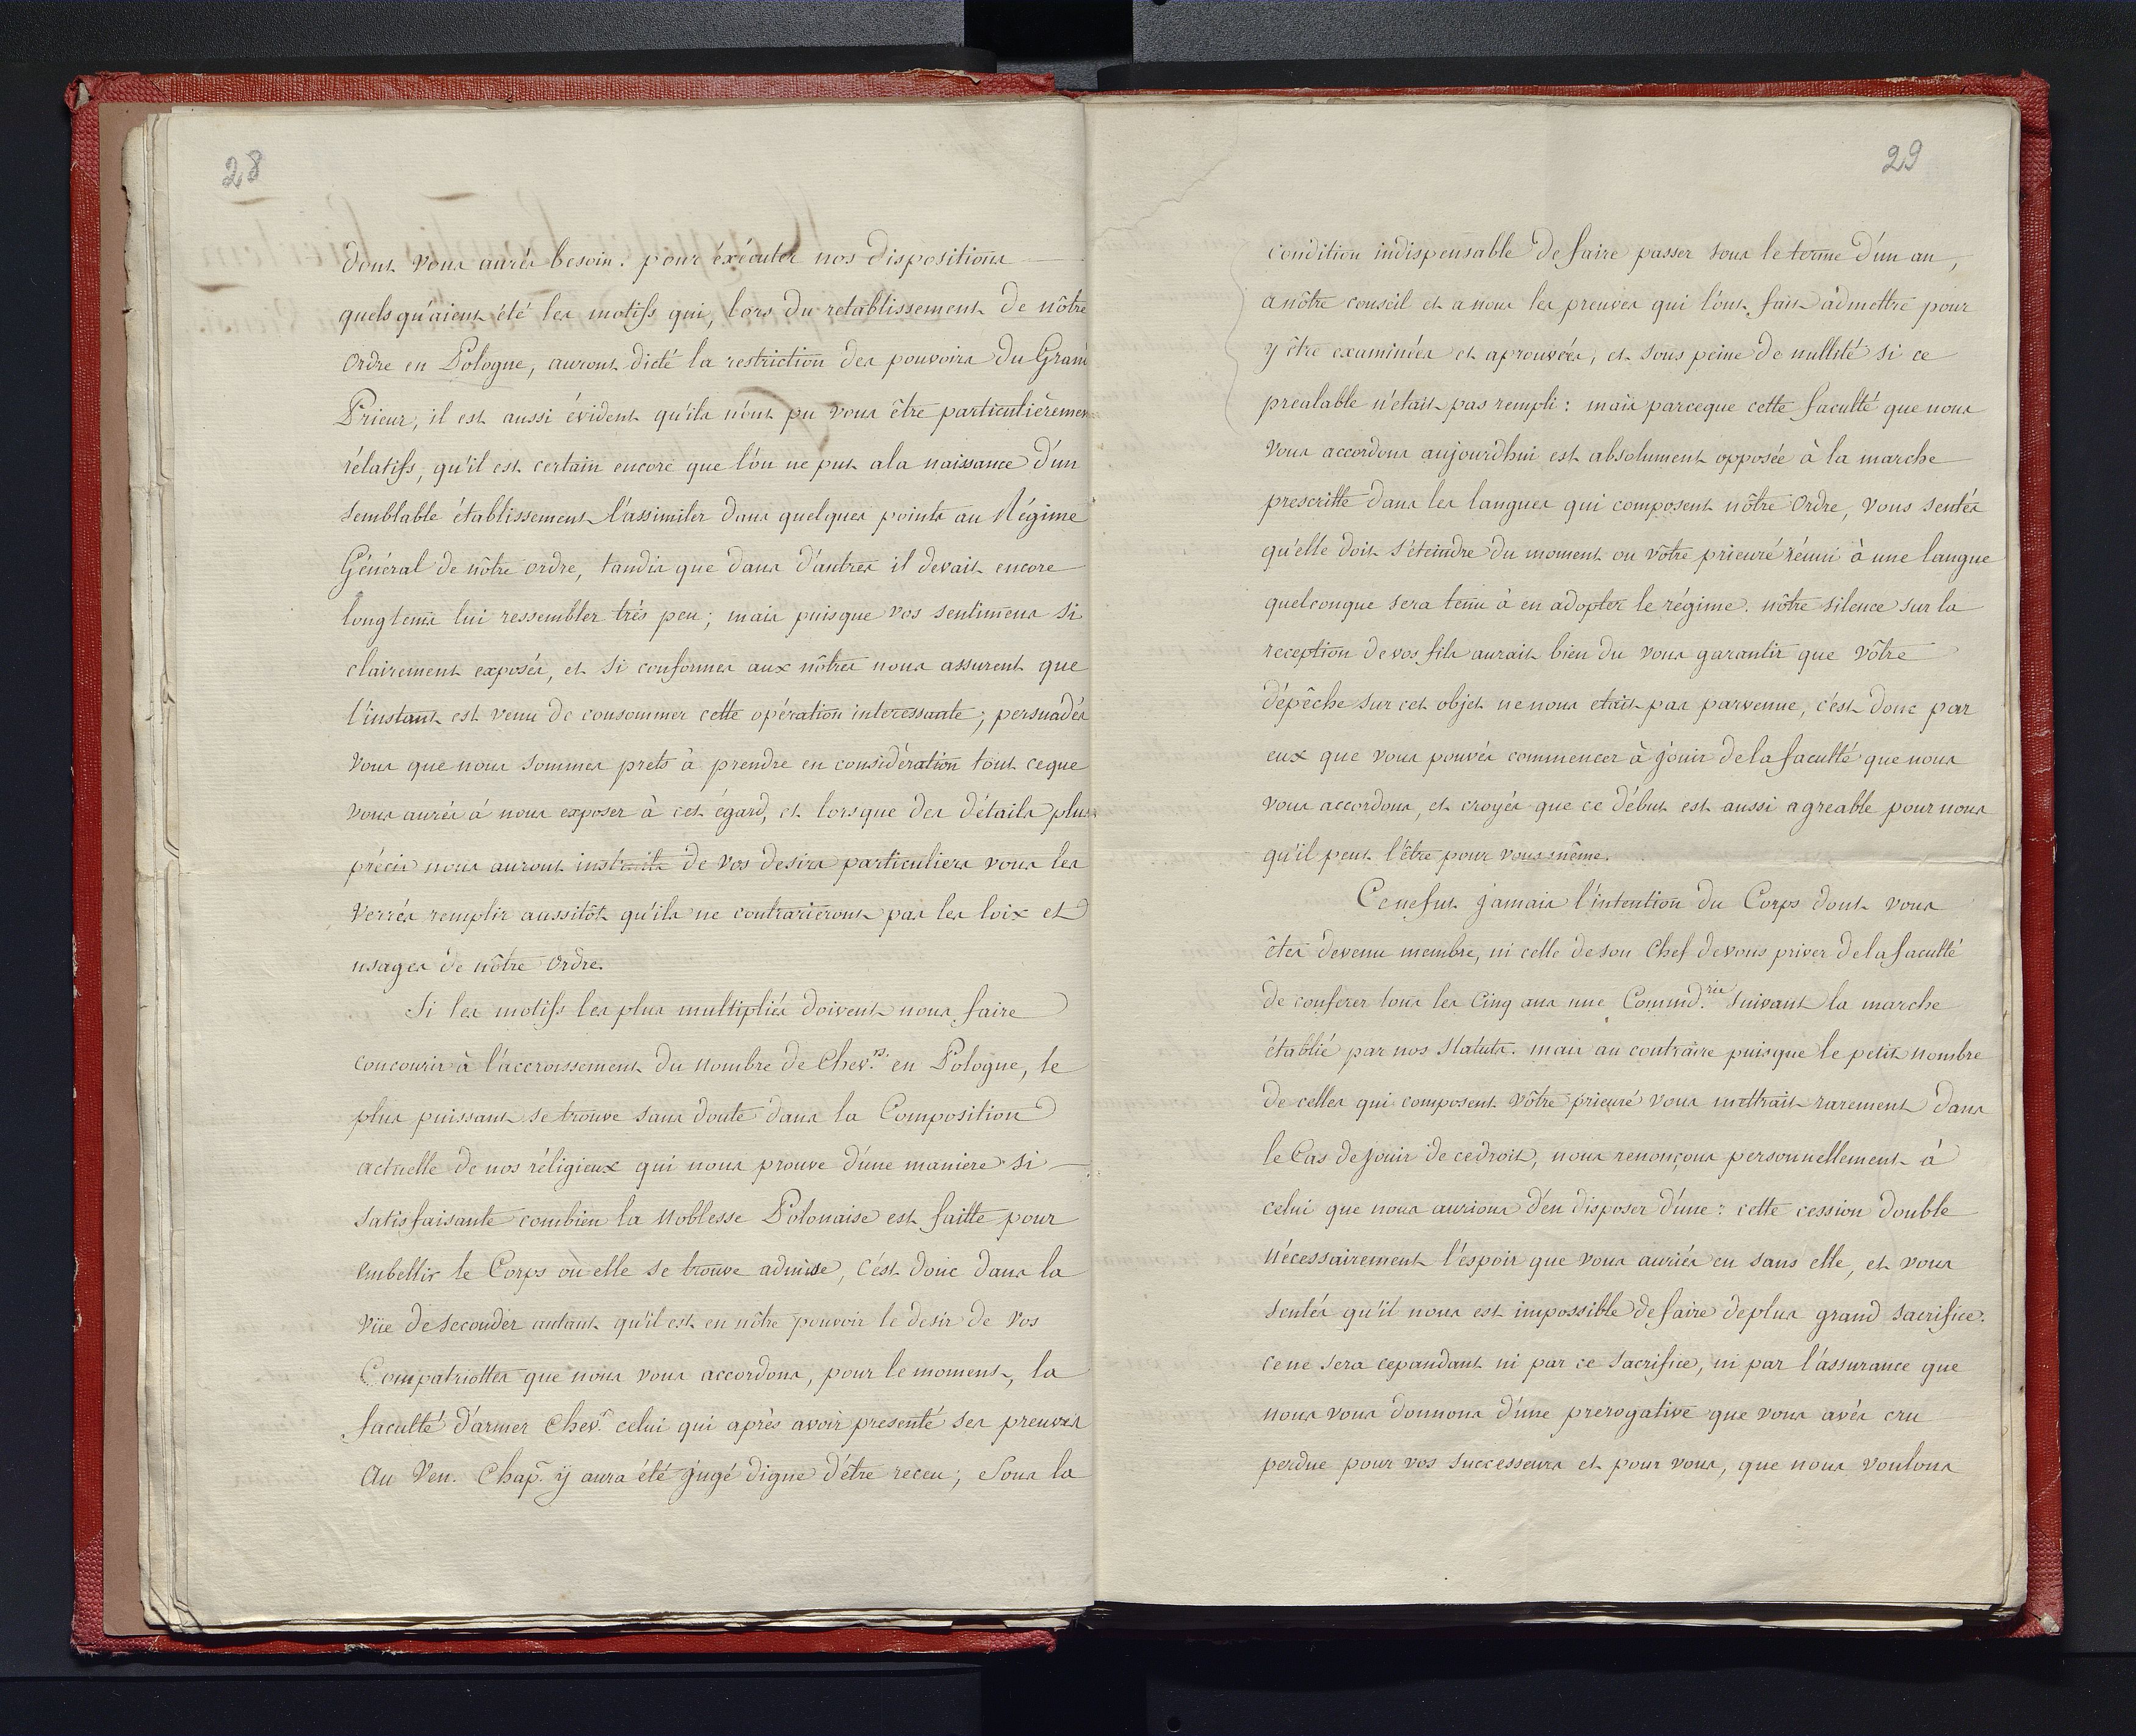 28
dont vous aurés besoin. pour éxécuter nos dispositions
quels qu'aient été les motifs qui, lors du retablissement de nôtre
Ordre en Pologne, auront dicté la restriction des pouvoirs du Grand
Prieur, il est aussi évident qu'ils n'ont pu vous être particulièrement
rélatifs, qu'il est certain encore que l'on ne put a la naissance d'un
semblable établissement l'assimiler dans quelques points au Régime
Général de nôtre ordre, tandis que dans d'autres il devait encore
longtems lui ressembler trés peu; mais puisque vos sentimens si
clairement exposés, et si conformes aux nôtres nous assurent que
l'instant est venu de consommer cette opération interessante; persuadés
vous que nous sommes prets à prendre en considération tout ceque
vous aurés à nous exposer à cet égard, et lorsque des détails plus
précis nous auront instruits de vos desirs particuliers vous les
verrés remplir aussitôt qu'ils ne contrarieront pas les loix et
usages de nôtre Ordre.
Si les motifs les plus multipliés doivent nous faire
concourir à l'accroissement du nombre de Chev.rs en Pologne, le
plus puissant se trouve sans doute dans la Composition
actuelle de nos réligieux qui nous prouve d'une maniere si
satisfaisante combien la Noblesse Polonaise est faitte pour
embellir le Corps où elle se trouve admise, c'est donc dans la
vüe de seconder autant qu'il est en nôtre pouvoir le desir de vos
Compatriottes que nous vous accordons, pour le moment, la
faculté d'armer Chev.r celui qui après avoir presenté ses preuves
Au Ven. Chap. y aura été jugé digne d'être receu; Sous la
29
condition indispensable de faire passer sous le terme d'un an,
a nôtre conseil et a nous les preuves qui l'ont fait admettre pour
y être examinées et aprouvées, et sous peine de nullité si ce
prealable n'etait pas rempli: mais parceque cette faculté que nous
vous accordons aujourdhui est absolument opposée à la marche
prescritte dans les langues qui composent nôtre Ordre, vous sentés
qu'elle doit s'éteindre du moment ou vôtre prieuré réuni à une langue
quelconque sera tenu à en adopter le régime. nôtre silence sur la
reception de vos fils aurait bien du vous garantir que vôtre
dépêche sur cet objet ne nous etait pas parvenue, c'est donc par
eux que vous pouvés commencer à jouir de la faculté que nous
vous accordons, et croyés que ce début est aussi agreable pour nous
qu'il peut l'être pour vous même.
Ce ne fut jamais l'intention du Corps dont vous
êtes devenu membre, ni celle de son Chef de vous priver de la faculté
de conferer tous les Cinq ans une Commd.rie suivant la marche
établie par nos Statuts. mais au contraire puisque le petit nombre
de celles qui composent vôtre prieuré vous mettrait rarement dans
le Cas de jouir de ce droit, nous renonçons personnellement à
celui que nous aurions d'en disposer d'une: cette cession double
nécessairement l'éspoir que vous auriés eu sans elle, et vous
sentés qu'il nous est impossible de faire de plus grand sacrifice.
ce ne sera cepandant ni par ce sacrifice, ni par l'assurance que
nous vous donnons d'une prerogative que vous avés cru
perdue pour vos successeurs et pour vous, que nous voulons